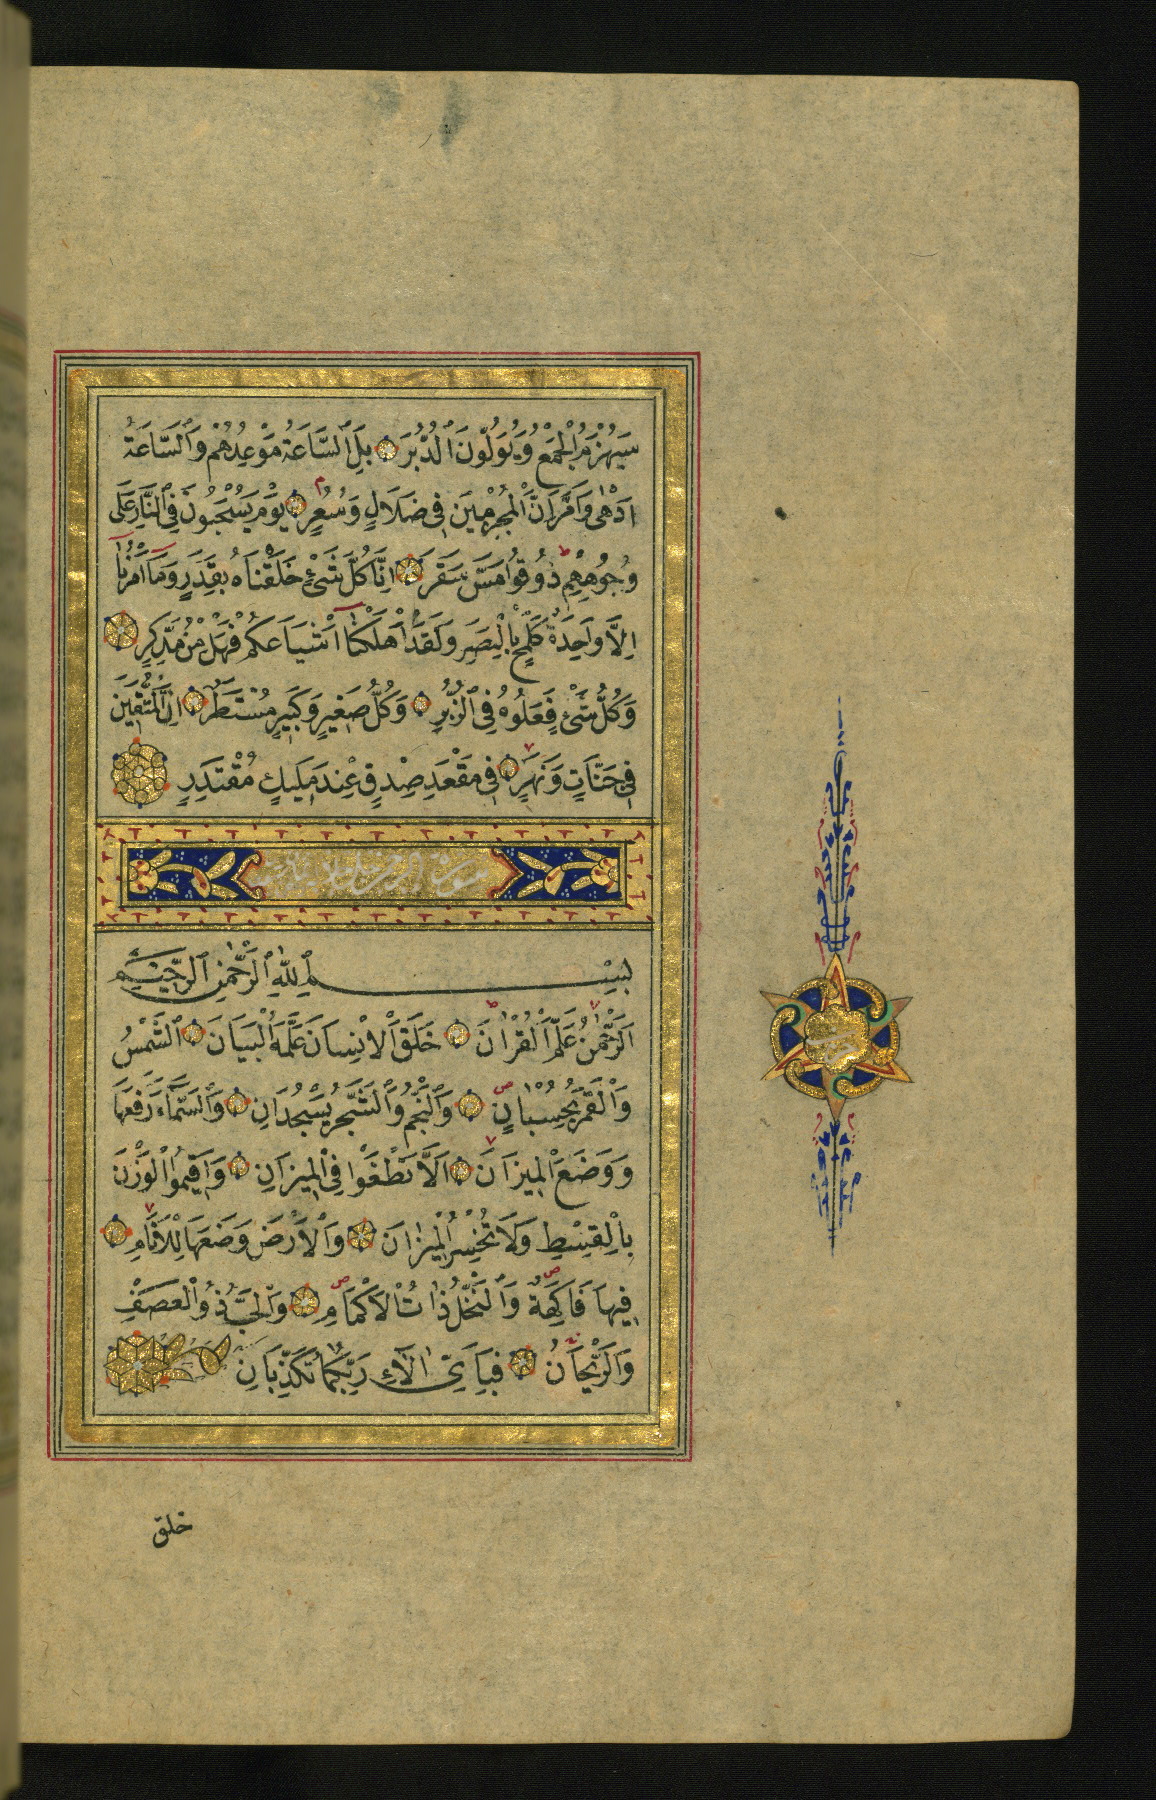 سَيُهْزَمُ الْجَمْعُ وَيُوَلُّونَ الدُّبُرَ بَلِ السَّاعَةُ مَوْعِدُهُمْ وَالسَّاعَةُ
اَدْهٰى وَاَمَرُّ اِنَّ الْمُجْرِمِينَ فِى ضَلَالٍ وَسُعُرٍ يَوْمَ يُسْحَبُونَ فِى النَّارِ عَلَى
وُجُوهِهِمْ ذُوقُوا مَسَّ سَقَرَ اِنَّا كُلَّ شَىْءٍ خَلَقْنَاهُ بِقَدَرٍ وَمَا اَمْرُنَا
اِلَّا وَاحِدَةٌ كَلَمْحٍ بِالْبَصَرِ وَلَقَدْ اَهْلَكْنَا اَشْيَاعَكُمْ فَهَلْ مِنْ مُدَّكِرٍ
وَكُلُّ شَىْءٍ فَعَلُوهُ فِى الزُّبُرِ وَكُلُّ صَغِيرٍ وَكَبِيرٍ مُسْتَطَرٌ اِنَّ الْمُتَّقِينَ
فِى جَنَّاتٍ وَنَهَرٍ فِى مَقْعَدِ صِدْقٍ عِنْدَ مَلِيكٍ مُقْتَدِرٍ
سورة الرحمن
بِسْمِ اللّٰهِ الرَّحْمٰنِ الرَّحِيمِ
اَلرَّحْمٰنُ عَلَّمَ الْقُرْاٰنَ خَلَقَ الْاِنْسَانَ عَلَّمَهُ الْبَيَانَ اَلشَّمْسُ
وَالْقَمَرُ بِحُسْبَانٍ وَالنَّجْمُ وَالشَّجَرُ يَسْجُدَانِ وَالسَّمَاءَ رَفَعَهَا
وَوَضَعَ الْمِيزَانَ اَلَّا تَطْغَوْا فِى الْمِيزَانِ وَاَقِيمُوا الْوَزْنَ
بِالْقِسْطِ وَلَا تُخْسِرُوا الْمِيزَانَ وَالْاَرْضَ وَضَعَهَا لِلْاَنَامِ
فِيهَا فَاكِهَةٌ وَالنَّخْلُ ذَاتُ الْاَكْمَامِ وَالْحَبُّ ذُو الْعَصْفِ
وَالرَّيْحَانُ فَبِاَىِّ اٰلَاءِ رَبِّكُمَا تُكَذِّبَانِ
خلق